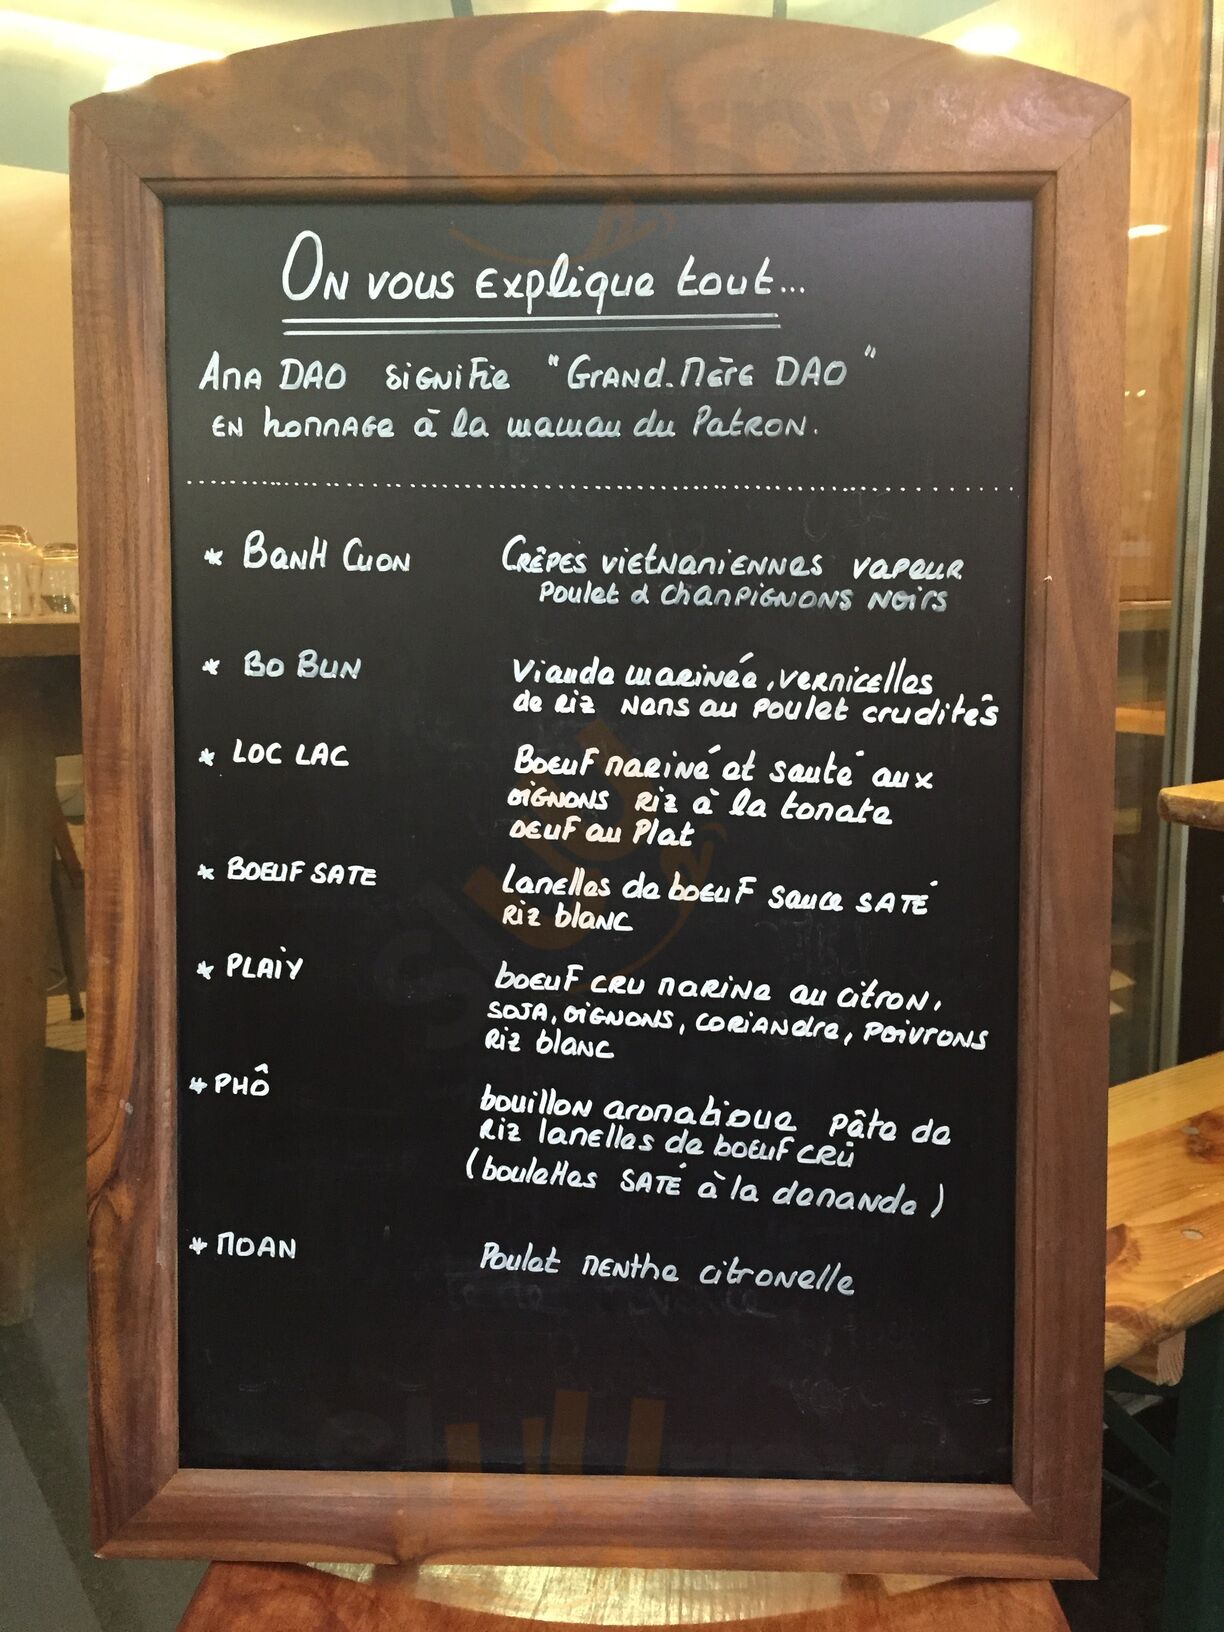 On vous explique tout...
Ana DAO signifie "Grand.Mère DAO"
en hommage à la maman du Patron.
* Banh Cuon Crêpes vietnamiennes vapeur
Poulet & champignons noirs
* Bo Bun Viande marinée, vernicelles
de riz nems au poulet crudités
* LOC LAC Boeuf mariné et sauté aux
oignons riz à la tomate
oeuf au Plat
* BOEUF SATE Lamelles de boeuf sauce SATÉ
Riz blanc
* PLAIY boeuf cru marine au citron,
soja, oignons, coriandre, poivrons
Riz blanc
* PHÔ bouillon aromatique pâte de
riz lamelles de boeuf crû
(boulettes SATÉ à la demande)
* MOAN Poulet menthe citronelle